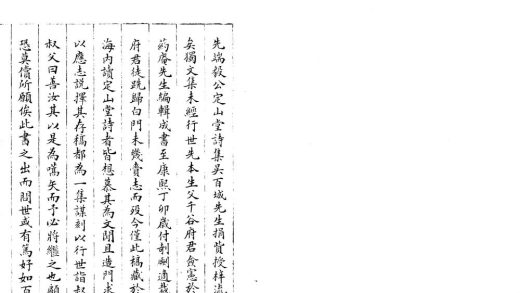 先端毅公定山堂詩集吳百城先生捐貲授梓流
矣獨文集未經行世先本生父千谷府君僉憲於
葯庵先生編輯成書至康熙丁卯歲付剞劂適裁
府君徒跣歸白門未幾賫志而歿今僅此稿藏於
海內讀定山堂詩者皆想慕其為文聞且造門求
以應志說擇其存稿都為一集謀刻以行世詣叔
叔父曰善汝其以是為嚆矢而予必將繼之也顧
恐莫償所願俟此書之出而問世或有篤好如百